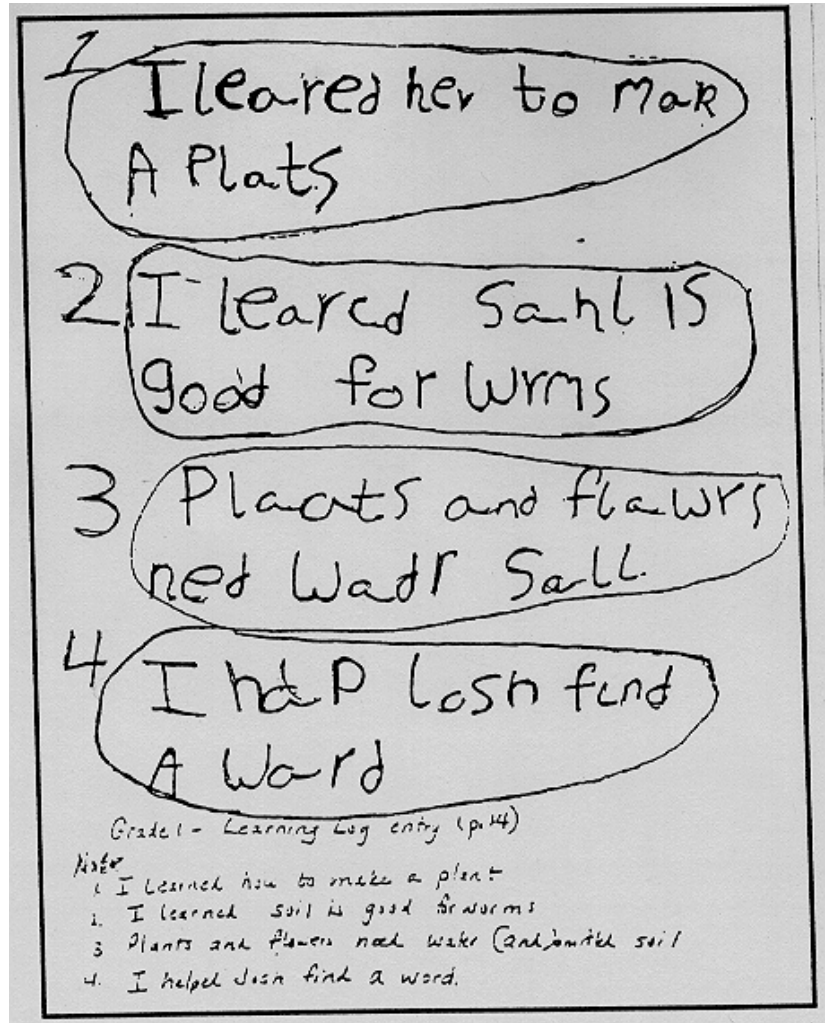 1 I leared her to mak
A Plats
2 I leared Sahl IS
good for Wrms
3 Plaats and flawrs
ned Wadr Sall
4 I halP Josh find
A Ward
Grade 1 - Learning Log entry (p. 14)
Note
1. I learned how to make a plant
2. I learned soil is good for worms
3 Plants and flowers need water (and) omitted soil
4. I helped Josh find a word.